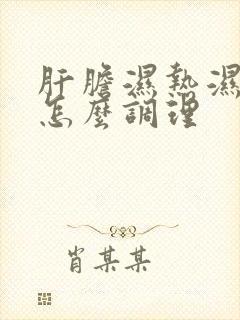 肝膽濕熱濕
怎麼調理
肖某某